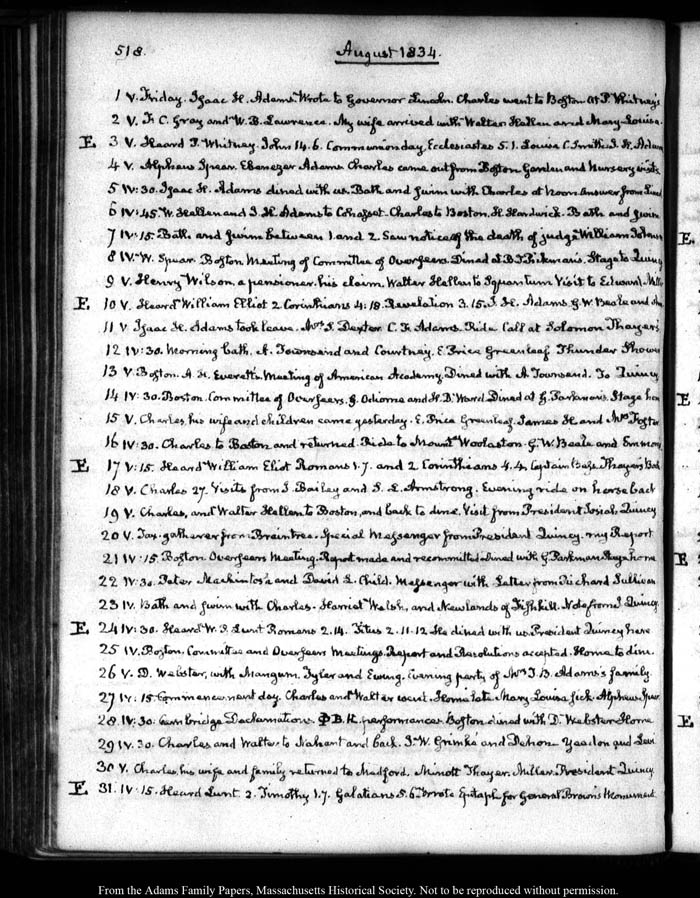 518.
August 1834.
1 V. Friday. Isaac H. Adams. Wrote to Governor Lincoln. Charles went to Boston at P. Whitney's
2 V. F. C. Gray and W. B. Lawrence. My wife arrived with Walter Hellen and Mary Louisa.
E 3 V. Heard P. Whitney. John 14. 6. Communion day. Ecclesiastes 5. 1. Louisa C. Smith. I. H. Adams
4 V. Alpheus Spear. Ebenezer Adams. Charles came out from Boston. Garden and Nursery
5 IV:30. Isaac H. Adams dined with us. Bath and swim with Charles at noon. Answer from
6 IV:45. W. Hellen and I. H. Adams to Cohasset. Charles to Boston. H. Hardwick. Bath and swim
7 IV:15. Bath and swim between 1 and 2. Saw notice of the death of judge William Johnson
8 IV. W. Spear. Boston Meeting of Committee of Overseers. Dined at B. Pickman's. Stage to Quincy
9 V. Henry Wilson, a pensioner. his claim. Walter Hellen to Squantum. Visit to Edward
E. 10 V. Heard William Elliot 2 Corinthians 4. 18. Revelation 3. 15. I. H. Adams. G. W. Beale and
11 V. Isaac H. Adams took leave. Mrs S. Dexter. C. F. Adams. Ride. Call at Solomon Thayer's
12 IV:30. Morning bath. A. Townsend and Courtney. E. Price Greenleaf. Thunder Shower
13 V. Boston. A. H. Everett's. Meeting of American Academy. Dined with A. Townsend. To Quincy
14 IV:30. Boston. Committee of Overseers. G. Odiorne and H. D. Ward. Dined at G. Parkman's. Stage home
15 V. Charles, his wife and children came yesterday. E. Price Greenleaf. James H. and Mrs Foster
16 IV:30. Charles to Boston and returned. Ride to Mount Woolaston. G. W. Beale and
E 17 V:15. Heard William Eliot Romans 1. 7. and 2 Corinthians 4. 4. Captain Bass. Thayer's
18 V. Charles 27. Visits from J. Bailey and S. L. Armstrong. Evening ride on horse back
19 V. Charles, and Walter Hellen to Boston, and back to dine. Visit from President Josiah Quincy
20 V. Tax-gatherer from Braintree. Special Messenger from President Quincy. my Report
21 IV:15. Boston. Overseers Meeting. Report made and recommitted. Dined with G. Parkman. Stage home
22 IV:30. Peter Mackintosh and David L. Child. Messenger with Letter from Richard Sullivan
23 IV. Bath and swim with Charles. Harriet Welsh, and Newlands of Fishkill. Note from J. Quincy
E. 24 IV:30. Heard W. P. Lunt Romans 2. 14. Titus 2. 11. 12. He dined with us. President Quincy here
25 IV. Boston. Committee and Overseers Meetings. Report and Resolutions accepted. Home to dine.
26 V. D. Webster, with Mangum, Tyler and Ewing. Evening party of Mrs T. B. Adams's family.
27 IV:15. Commencement day. Charles and Walter went. Home late. Mary Louisa sick. Alpheus Spear
28 IV:30. Cambridge Declamations. ΦBK. performances. Boston dined with D. Webster. Home
29 IV:30. Charles and Walter to Nahant and back. T. W. Grimké and Dehon Yeadon and
30 V. Charles, his wife and family returned to Medford. Minott Thayer. Miller. President Quincy
E 31. IV:15. Heard Lunt. 2. Timothy 1. 7. Galatians 5. 6. Wrote Epitaph for General Brown's Monument
E
E
E
E
From the Adams Family Papers, Massachusetts Historical Society. Not to be reproduced without permission.